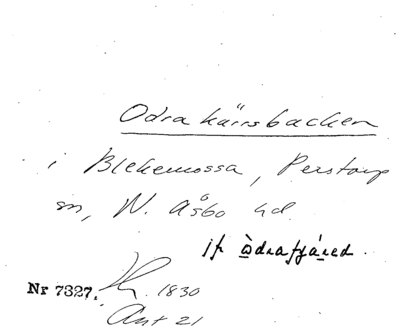 Odrakärrsbacken
i Blekemossa, Perstorp
sn, N. Åsbo hd.
jfr òdrafjáred.
Nr 7327. 1830
Akt 21